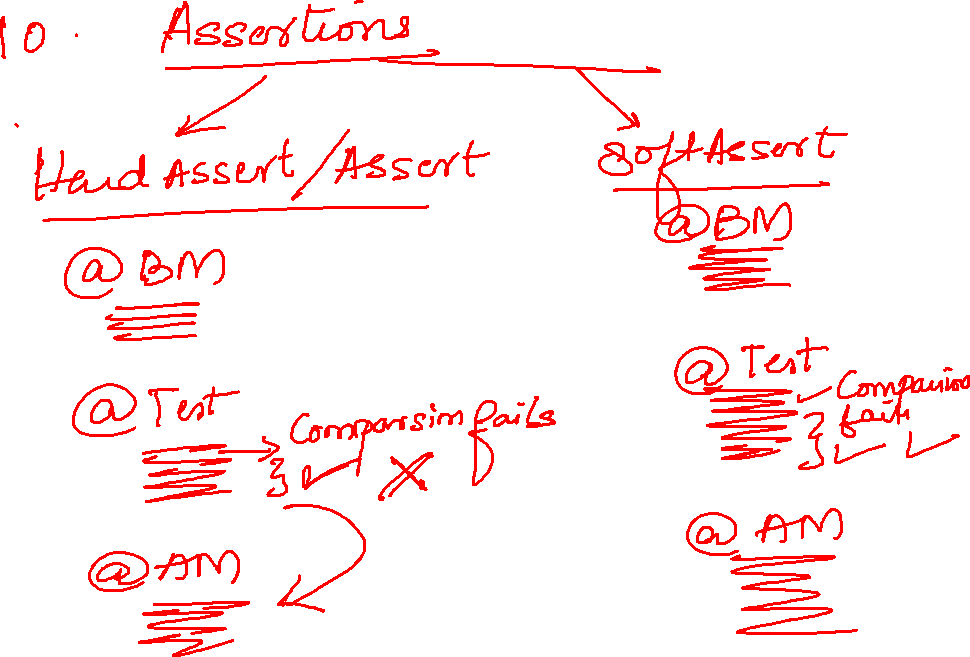 10. Assertions
Hard Assert/Assert
@ BM
@ Test
Comparsim fails
@ AM
SoftAssert
@ BM
@ Test
Comparison
fails
@ AM